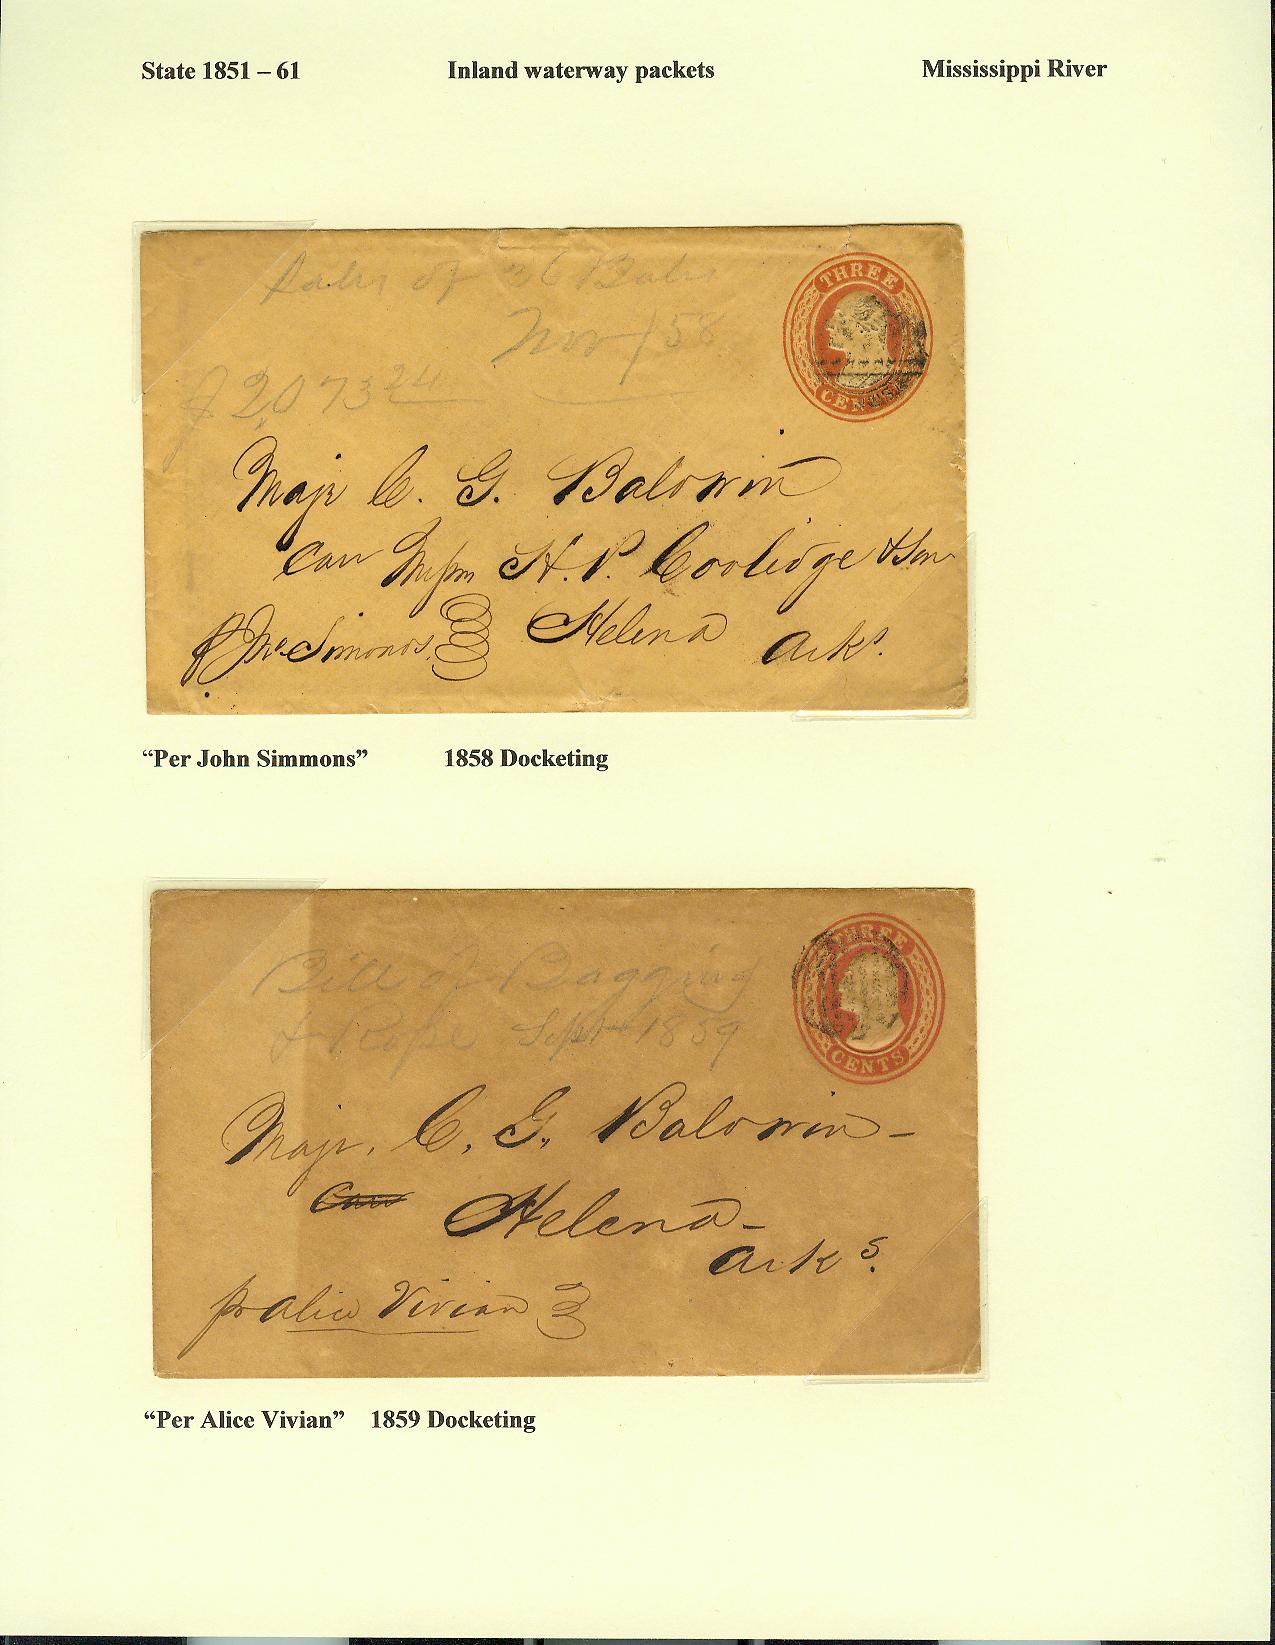 State 1851 – 61 Inland waterway packets Mississippi River
Sales of 36 Bales
Nov / 58
$2,073 24
THREE
CENTS
Majr C. G. Baldwin
Care Messrs H. P. Coolidge & Son
Helena Arks.
p Jno. Simonds
“Per John Simmons” 1858 Docketing
Bill of Bagging
& Rope Sept 1859
THREE
CENTS
Majr. C. G. Baldwin –
Care Helena –
Arks.
pr Alice Vivian
“Per Alice Vivian” 1859 Docketing